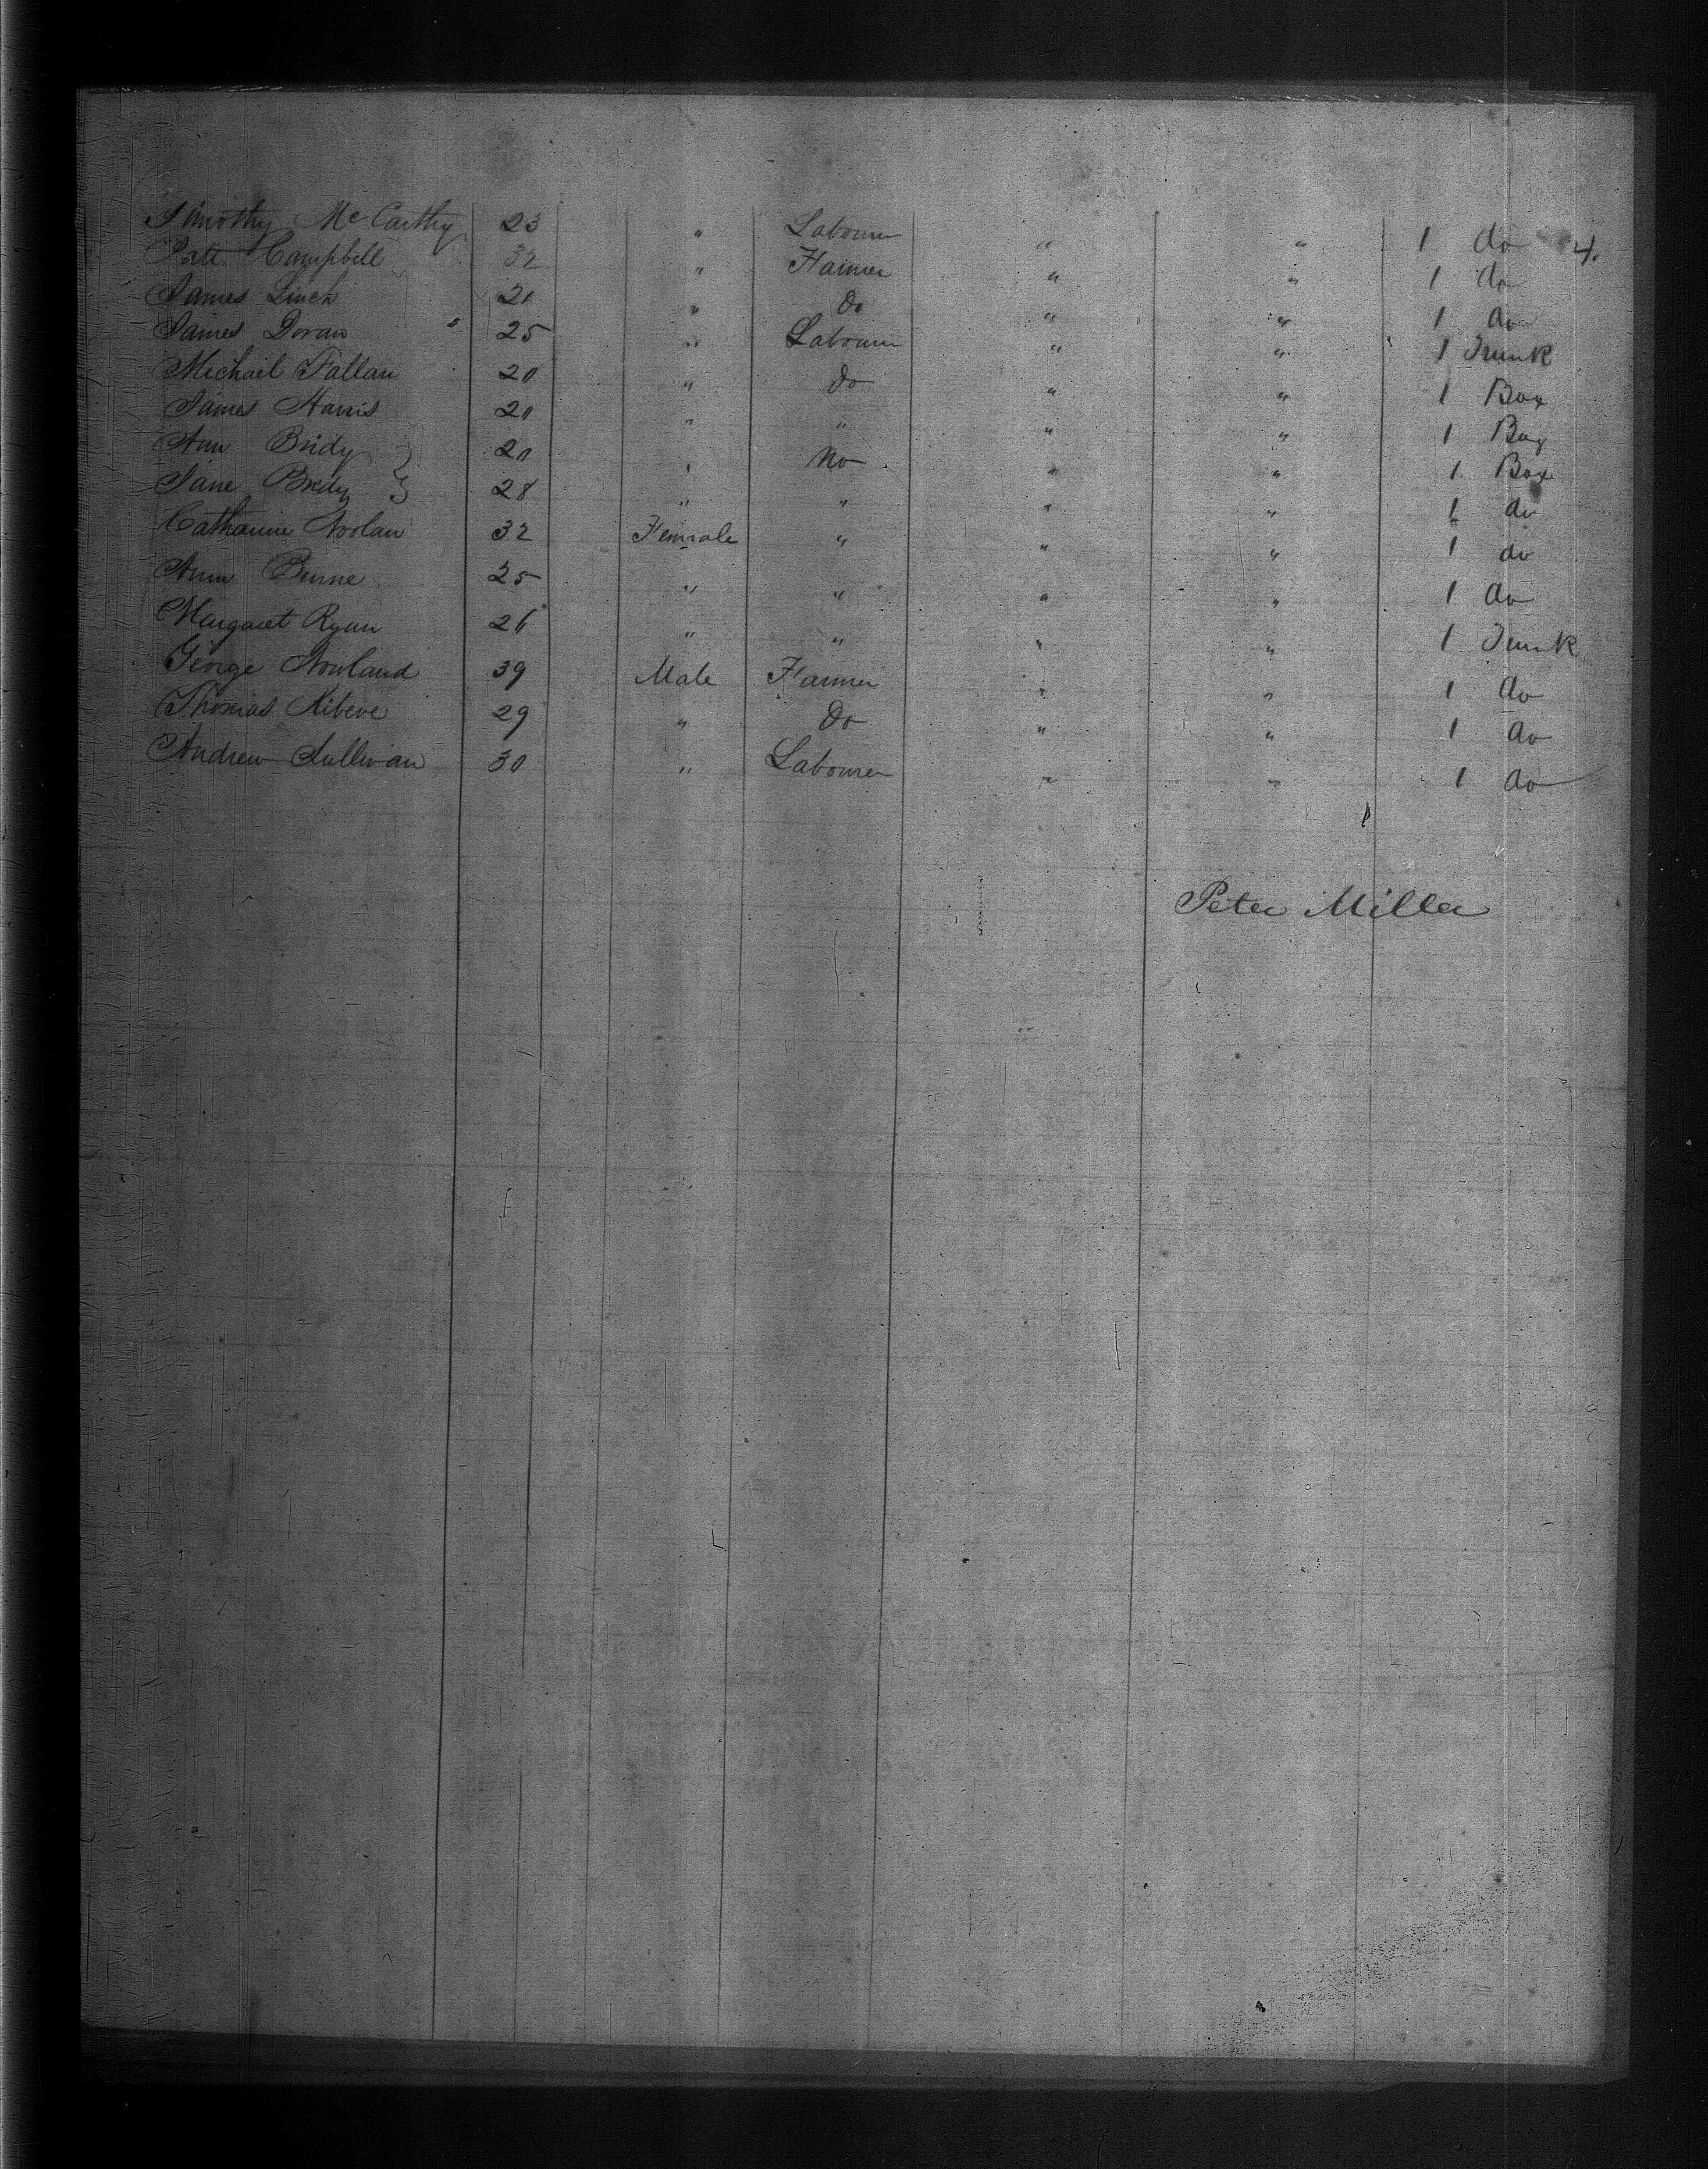 Timothy Mc Carthy 23 " Labourer " " 1 do 4.
Patt Campbell 32 " Farmer " " 1 do
James Linch 21 " Do " " 1 do
James Doran 25 " Labourer " " 1 Trunk
Michail Fallan 20 " do " " 1 Box
James Harris 20 " " " " 1 Bag
Ann Bridy 20 " No " " 1 Box
Jane Bridy 28 " " " " 1 do
Catharine Noolan 32 Female " " " 1 do
Ann Burne 25 " " " " 1 do
Margaret Ryan 26 " " " " 1 Trunk
George Nowland 39 Male Farmer " " 1 do
Thomas 29 " Do " " 1 do
Andrew Sullivan 30 " Labourer " " 1 do
Peter Miller